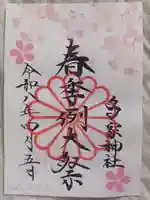 多家神社
春季例大祭
令和八年四月五日